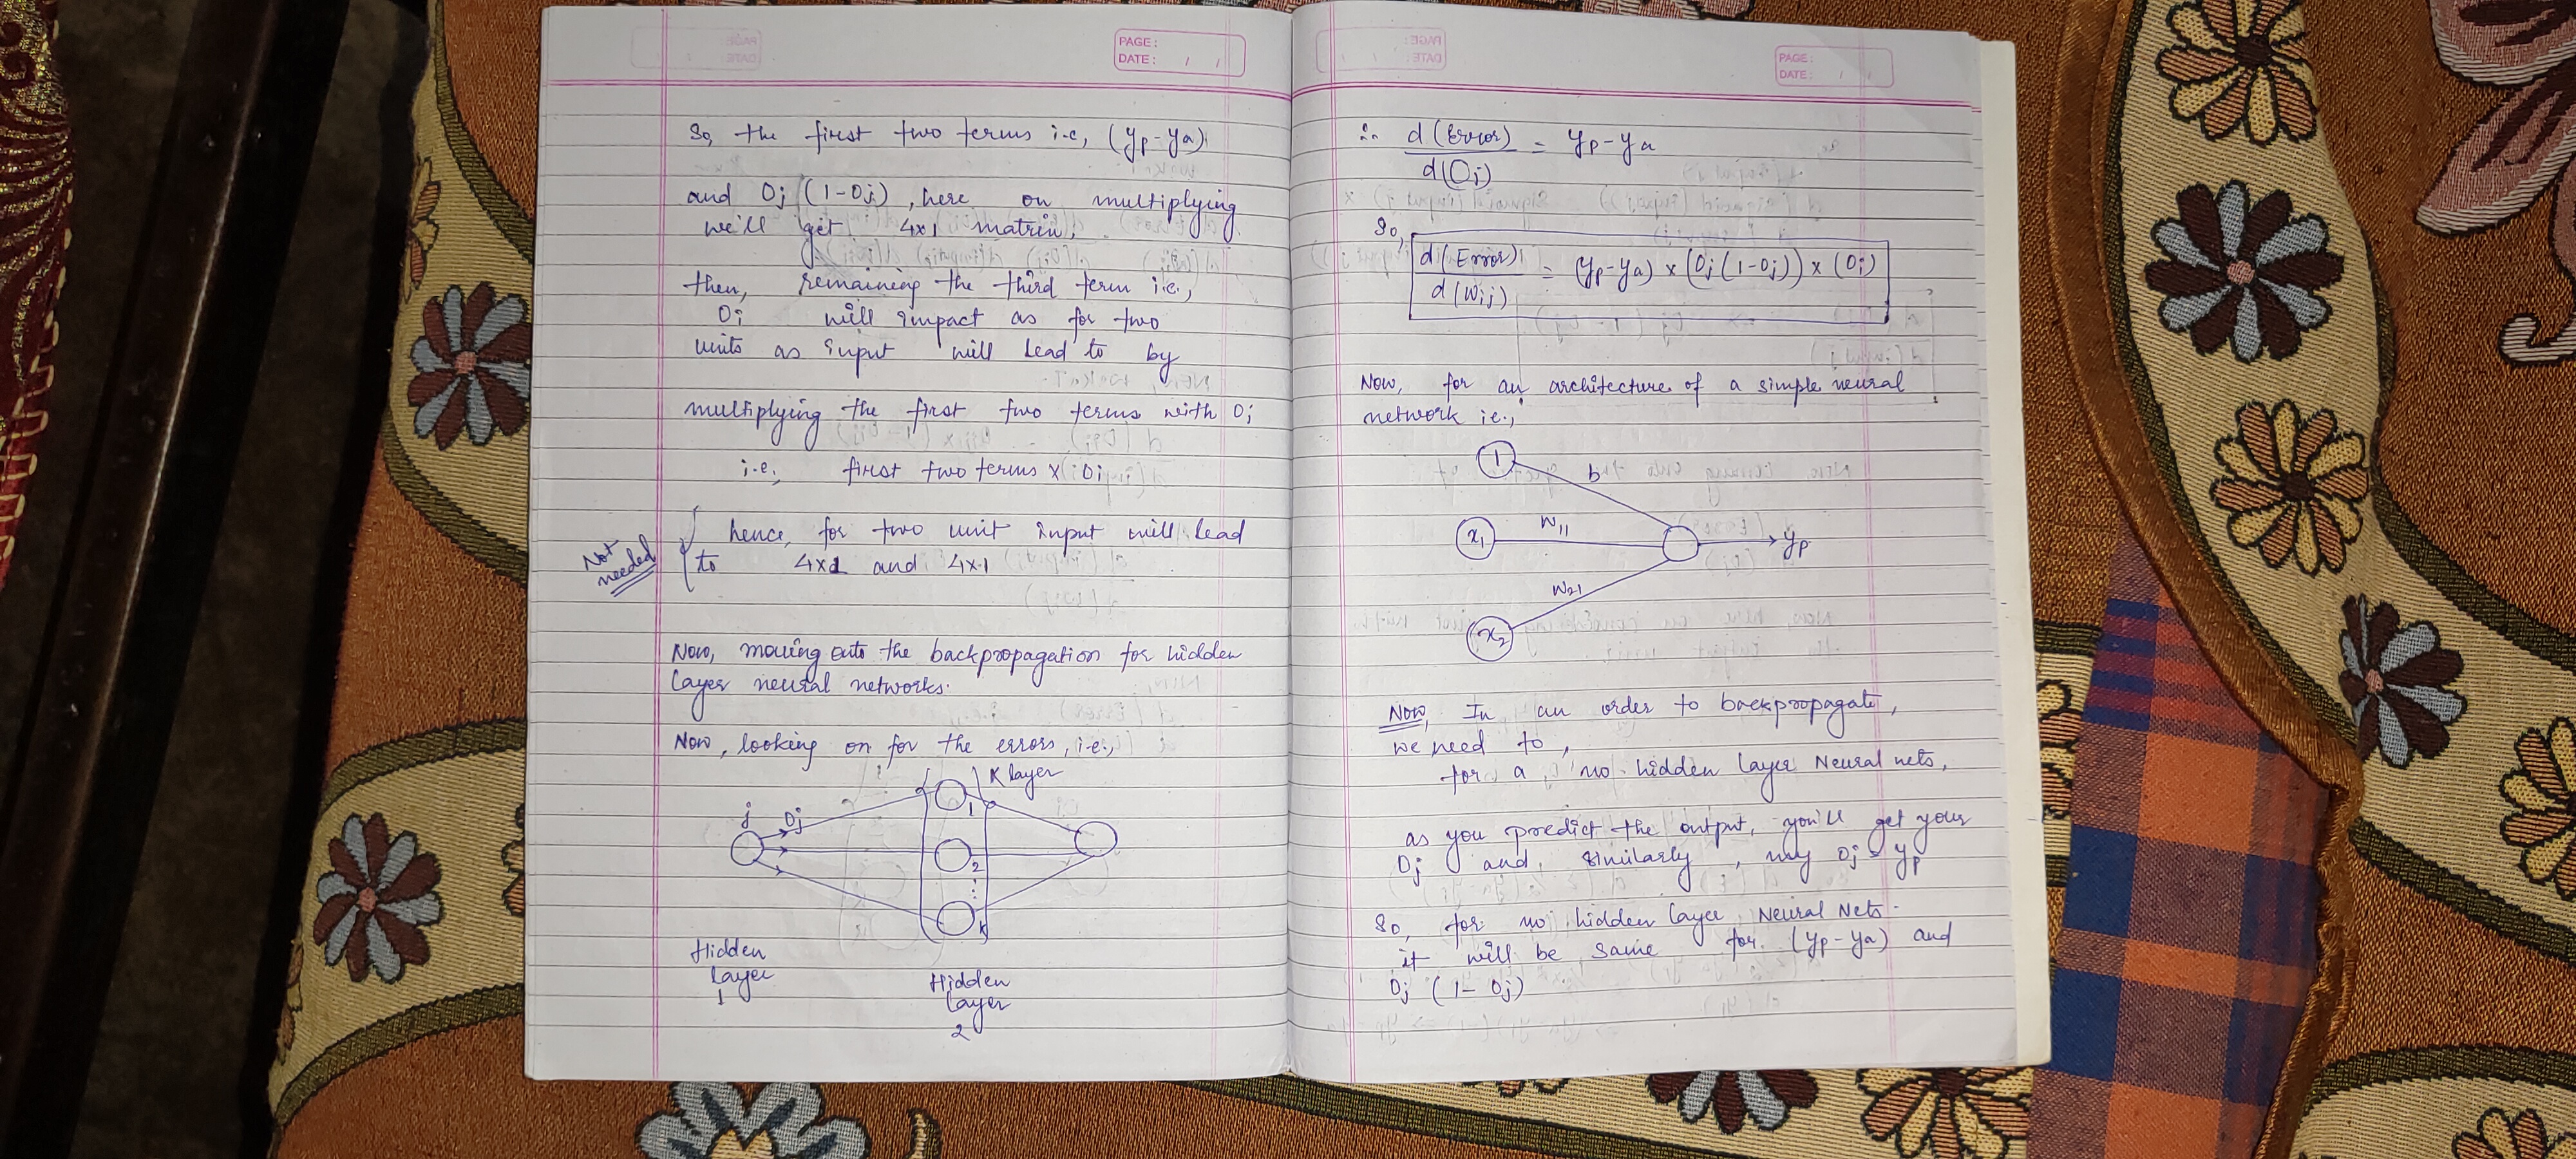 PAGE:
DATE: / /
So, the first two terms i.e, (yp-ya)
and Oj (1-Oj), here on multiplying
we'll get 4x1 matrix,
then, remaining the third term i.e.,
Oi will impact as for two
units as input will lead to by
multiplying the first two terms with Oi
i.e. first two terms x Oi
Not needed
hence, for two unit input will lead
to 4x1 and 4x1
Now, moving onto the backpropagation for hidden
layer neural networks.
Now, looking on for the errors, i.e.,
K layer
j Oj 1
2
k
Hidden layer 1
Hidden layer 2
PAGE:
DATE: / /
∴ d(Error)/d(Oj) = yp-ya
So,
d(Error)/d(Wij) = (yp-ya) x (Oj(1-Oj)) x (Oi)
Now, for an architecture of a simple neural
network i.e.,
1 b
x1 W11 yp
W21
x2
Now, In an order to backpropagate,
we need to,
for a, no hidden layer Neural nets,
as you predict the output, you'll get your
Oj and, similarly, my Oj = yp
So, for no hidden layer Neural Nets.
it will be same for (yp-ya) and
Oj (1-Oj)